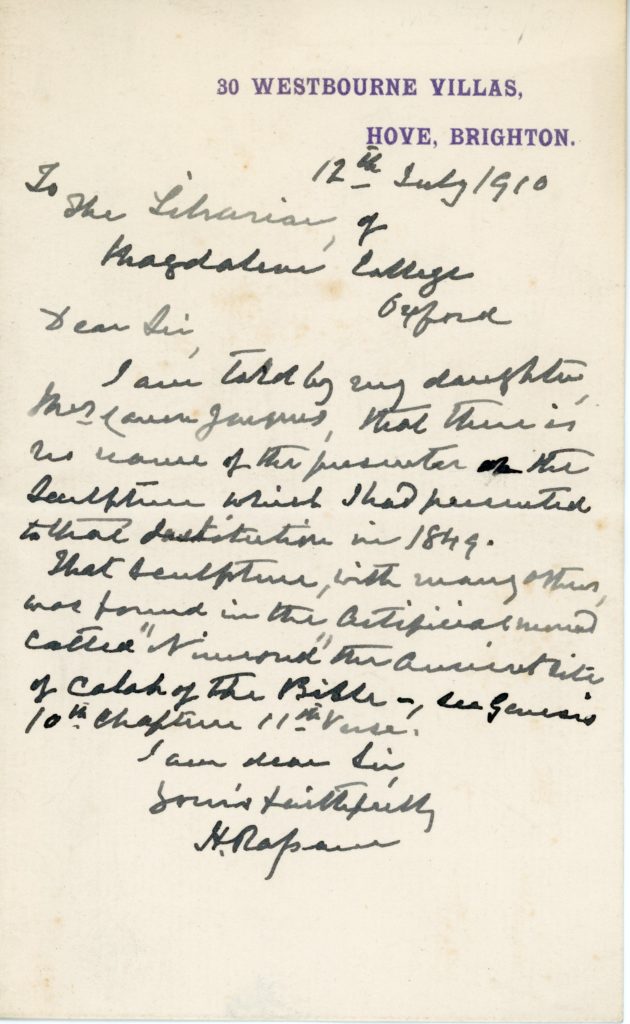 30 WESTBOURNE VILLAS,
HOVE, BRIGHTON.
12th July 1910
To
The Librarian, of
Magdalene College
Oxford
Dear Sir,
I am told by my daughter,
Mrs, that there is
no name of the presenter on the
Sculpture which I had presented
to that Institution in 1849.
That sculpture, with many others,
was found in the Artificial mound
called "Nimroud" the Ancient site
of Calah of the Bible -, see Genesis
10th Chapter 11th Verse.
I am dear Sir,
Yours faithfully
H. Rassam